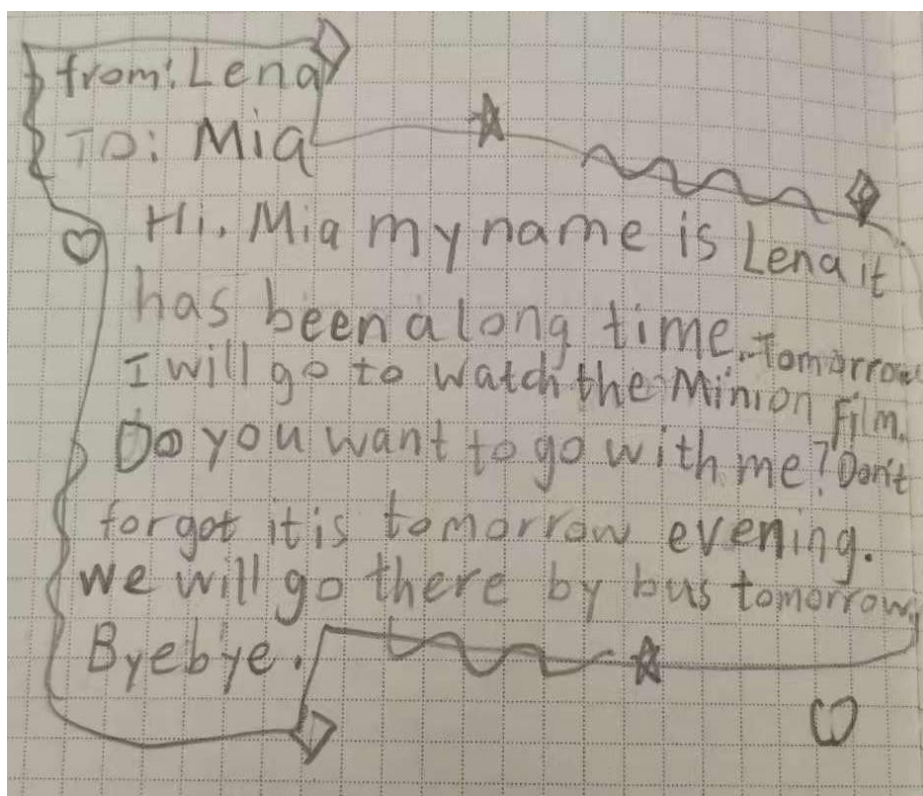 from: Lena
TO: Mia
Hi, Mia my name is Lena it
has been a long time. Tomorrow
I will go to watch the Minion Film.
Do you want to go with me? Don't
forgot it is tomorrow evening.
We will go there by bus tomorrow,
Byebye.